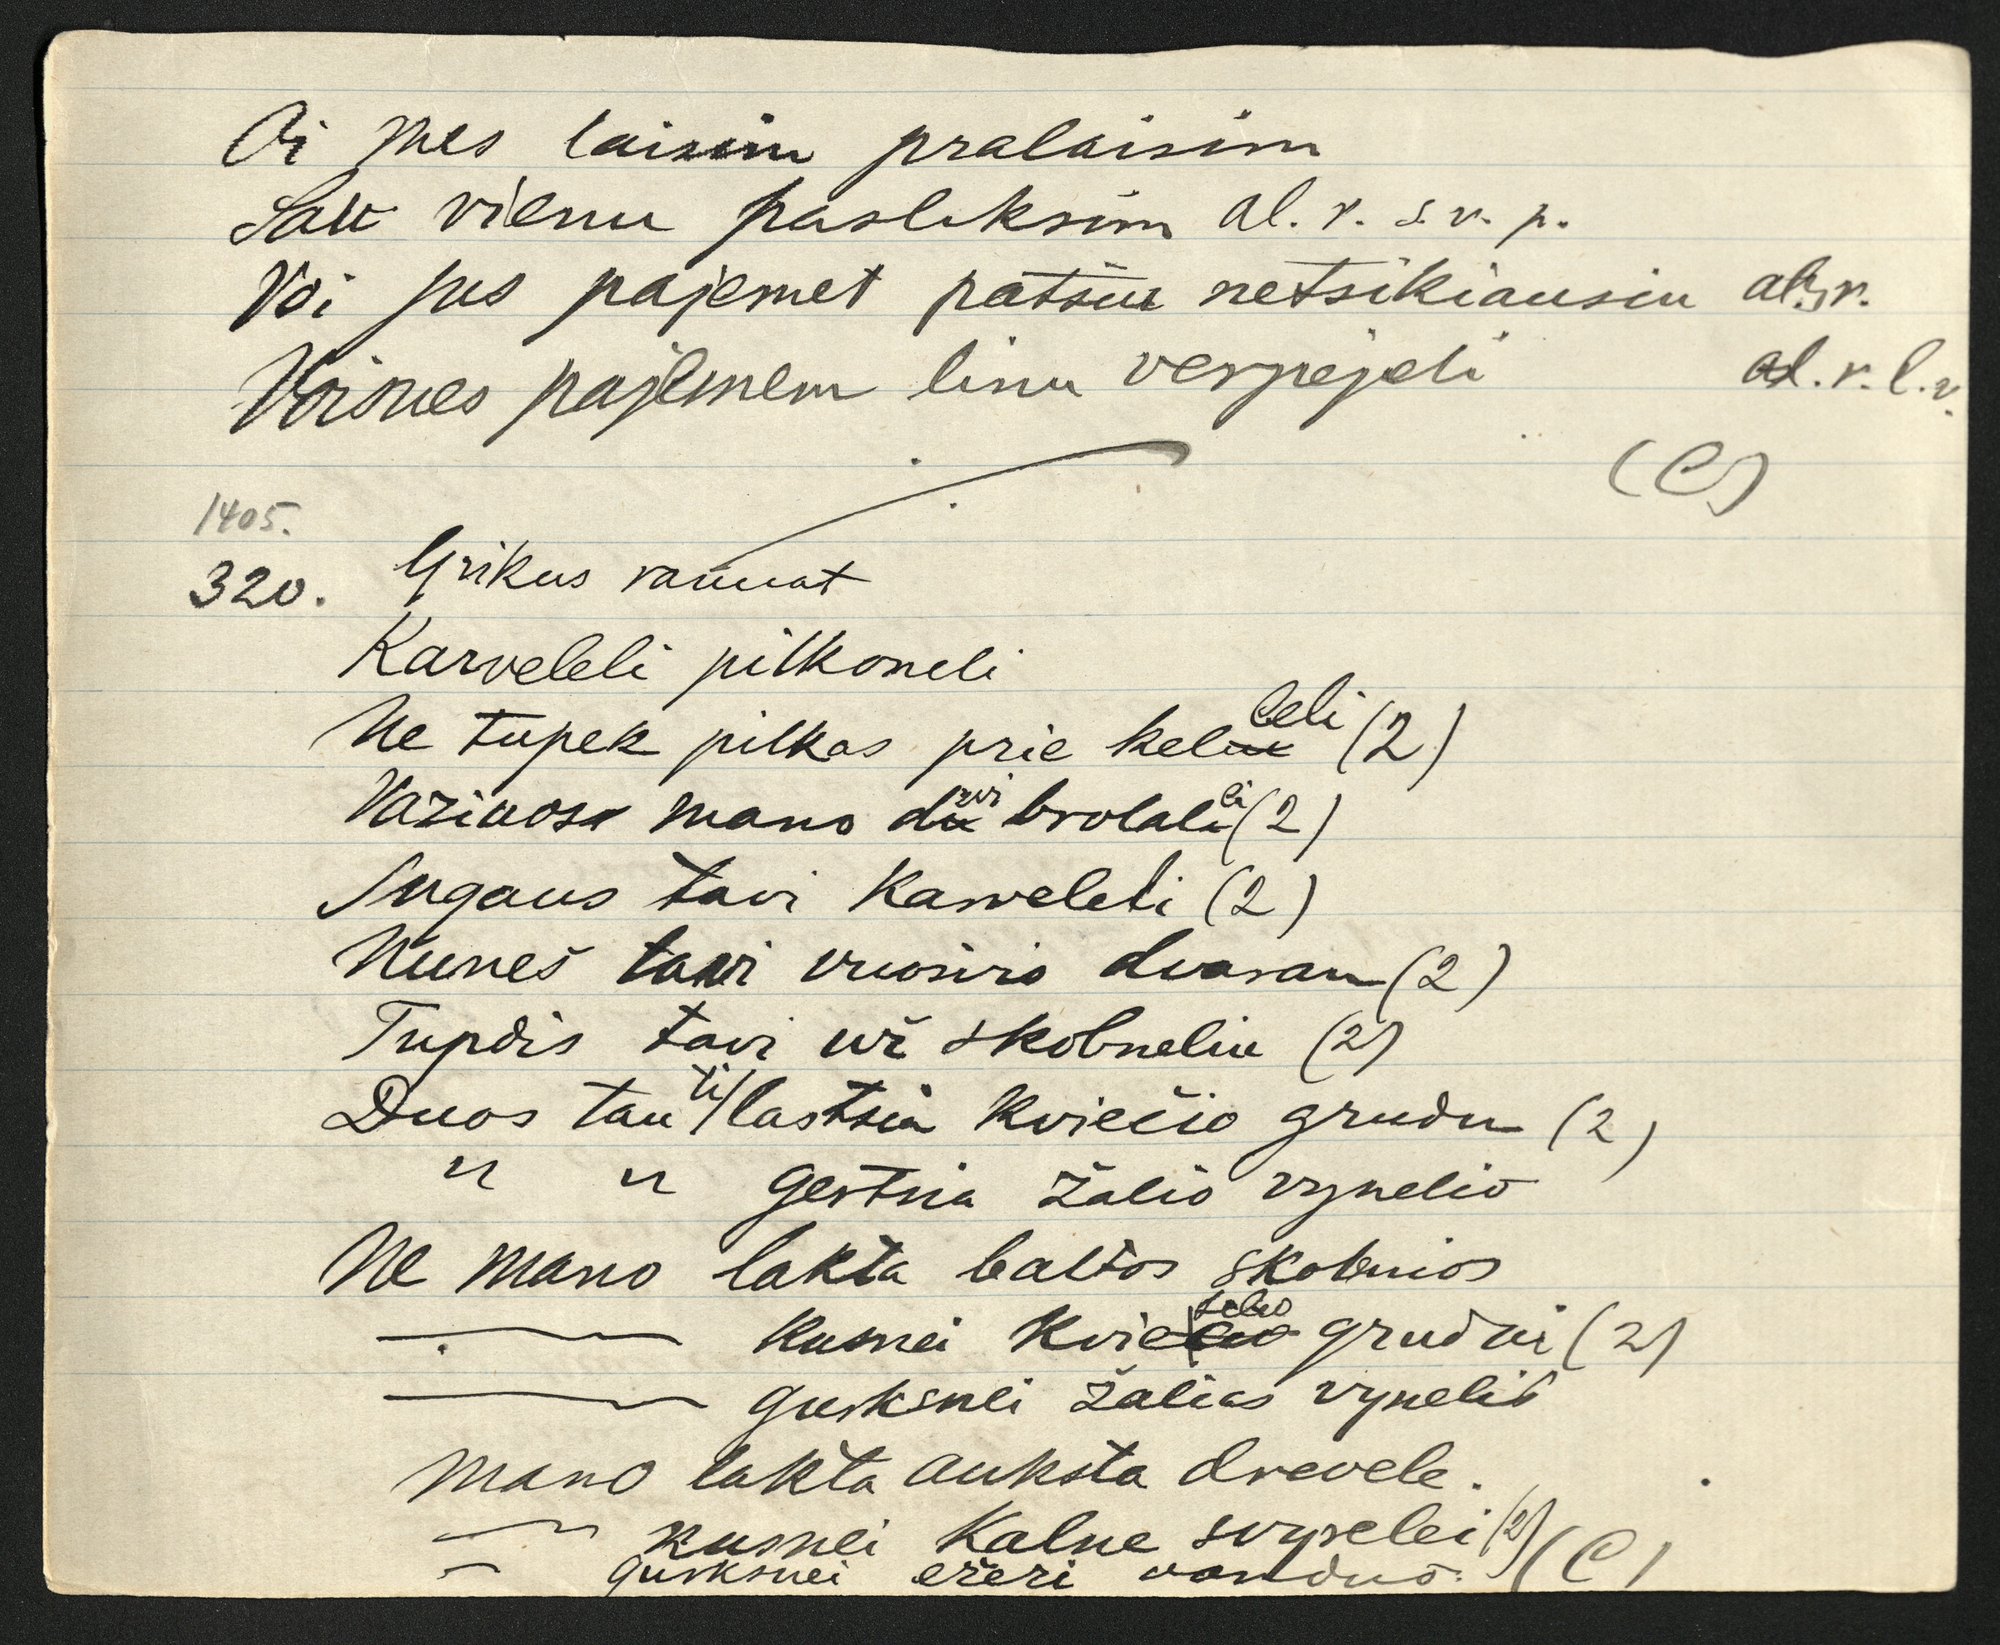 Oi mes laisim pralaisim
Sau vienu pasliksim al. r. s. v. p.
Voi jus pajemet patsiu netsikiausiu al. r.
Voi mes pajemem linu verpejeli al. r. l. v.
(C)
1405.
320. Grikus raunat
Karveleli pilkoneli
Ne tupek pilkas prie keleli (2)
Vaziuos mano dvi brolalei (2)
Sugaus tavi karveleli (2)
Nuneš tavi vuošvio dvaran (2)
Tupdis tavi už skobneliu (2)
Duos tau ti/lastsia kviečio grudu (2)
" " gertsia žalio vynelio
Ne mano lakta baltos skobnios
— kusnei kvietelio grudai (2)
— gurksnei žalias vynelis
Mano lakta auksta drevele.
— kusnei kalne svyrelei (2) (C)
— gurksnei ežeri vanduo.